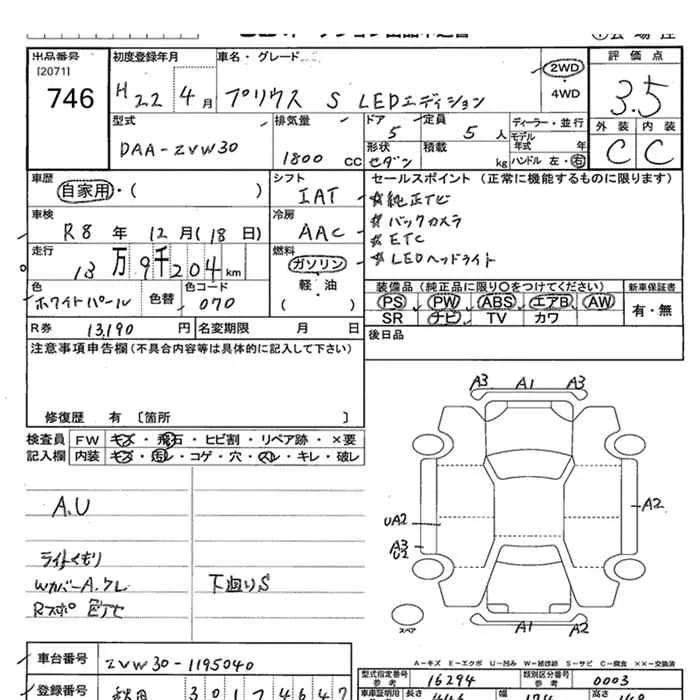 出品番号 初度登録年月 車名・グレード 評価点
[2071]
746 H22 4月 プリウス S LEDエディション 2WD 3.5
・
4WD
型式 排気量 ドア 定員 ディーラー・並行 外装 内装
5 5人 モデル年式 年
DAA-ZVW30 1800cc 形状 セダン 積載 kg ハンドル 左・右 C C
車歴 シフト セールスポイント (正常に機能するものに限ります)
自家用・( ) IAT 純正TV
車検 冷房 バックカメラ
R8年 12月(18日) AAC ETC
走行 燃料 LEDヘッドライト
13万9千204km ガソリン
色 色替 色コード 軽・油 装備品(純正品に限り○をつけてください) 新車保証書
ホワイトパール 070 ( ) PS PW ABS エアB AW 有・無
R券 13,190円 名変期限 月 日 SR ナビ TV カワ
注意事項申告欄(不具合内容等は具体的に記入して下さい) 後日品
修復歴 有 [箇所 ]
検査員 FW キズ・飛石・ヒビ割・リペア跡・×要
記入欄 内装 キズ・汚レ・コゲ・穴・スレ・キレ・破レ
A3 A1 A3
A.U
A2
UA2
A3
U2
ライトくもり
WカバーA.ワレ 下廻りS
Rスポ 色アセ
スペア
A1 A2
A-キズ E-エクボ U-凹み W-補修跡 S-サビ C-腐食 ××-交換済
車台番号 ZVW30-1195040
型式指定番号 参考 16294 類別区分番号 参考 0003
登録番号 秋田 301 7 4647
長さ 幅 高さ